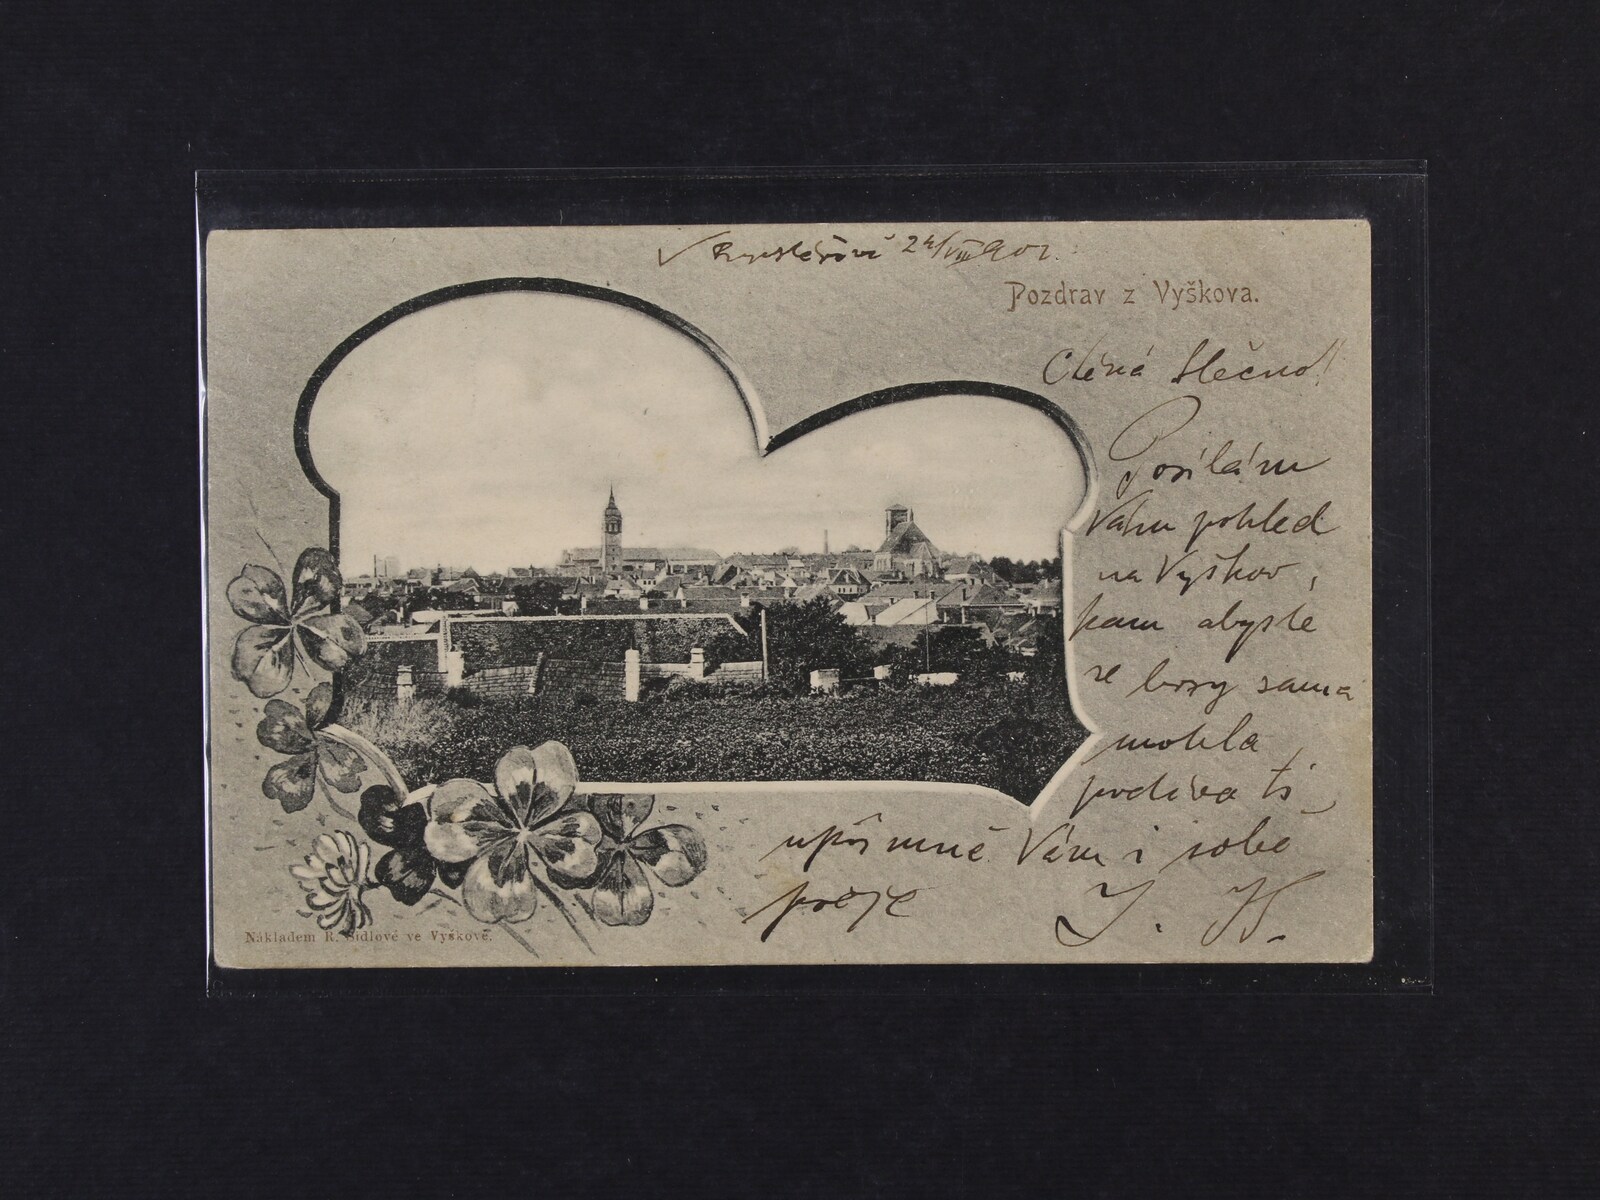 V 24/VIII 902.
Pozdrav z Vyškova.
Ctěná Slečno!
Posílám
Vám pohled
na Vyškov,
kam abyste
se brzy sama
mohla
podívati
upřímně Vám i sobě
přeje J. H.
Nákladem R. Sidlové ve Vyškově.